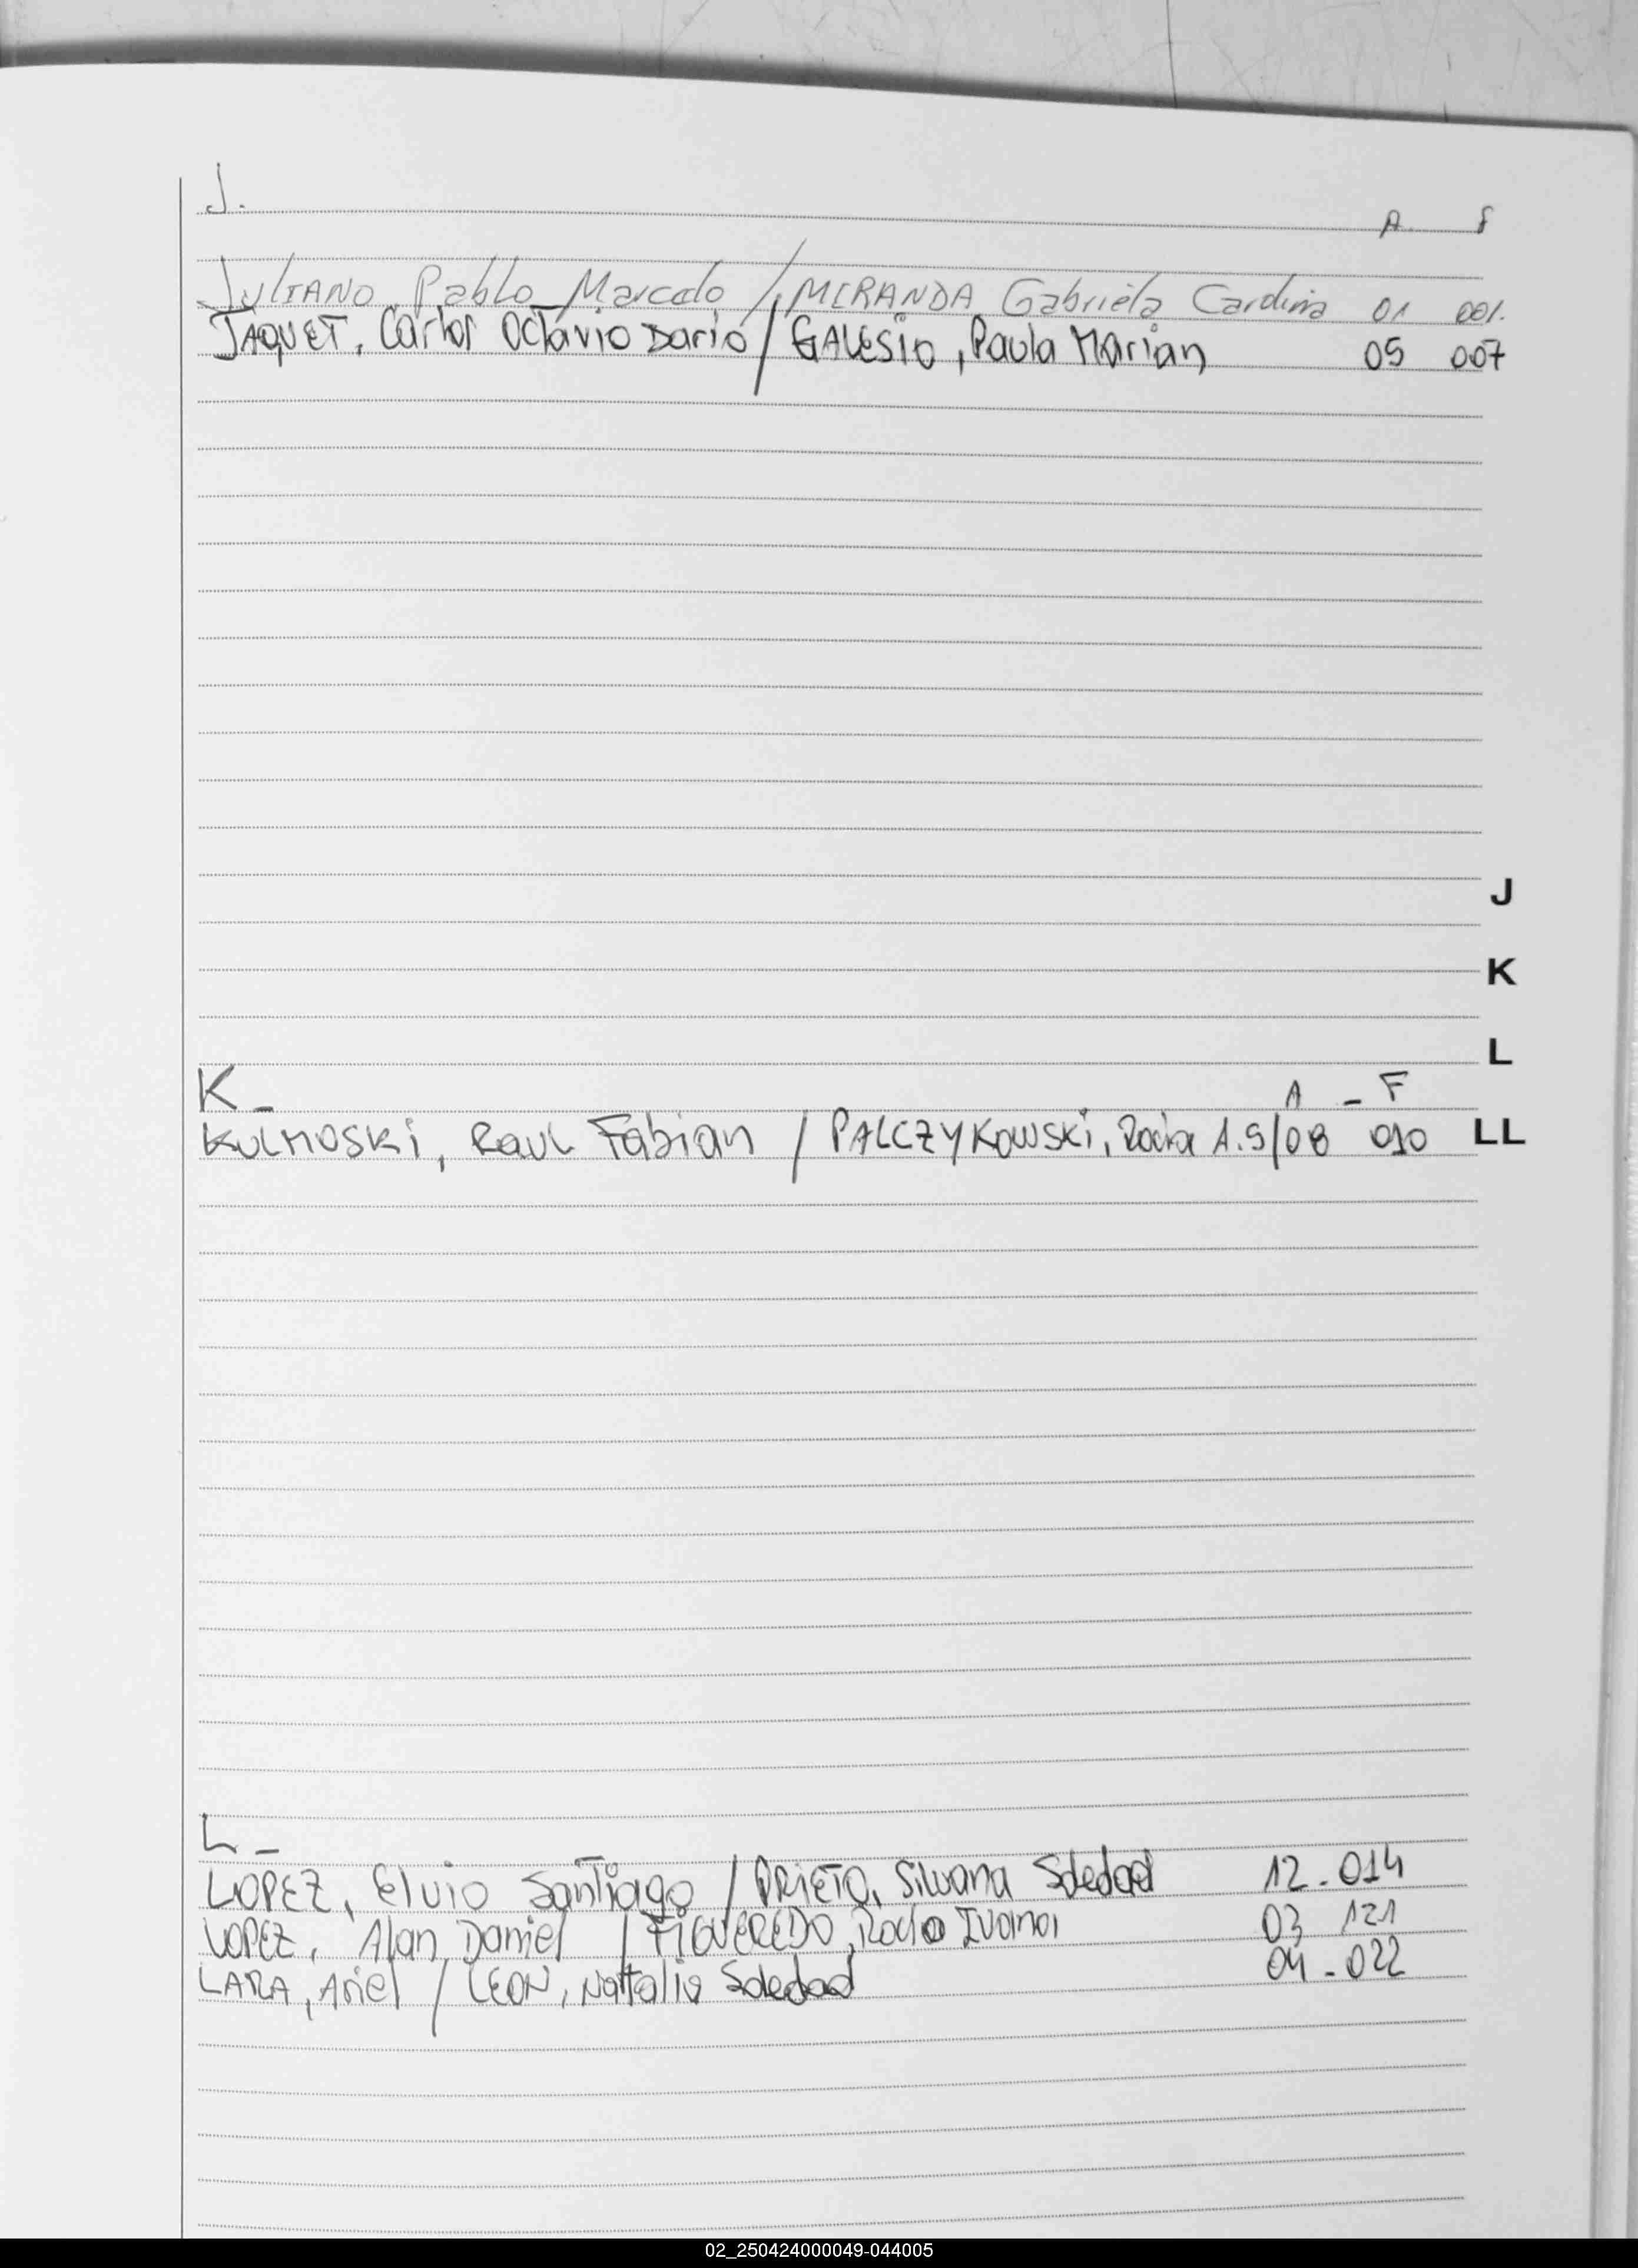 J.
A. F
JULIANO, Pablo Marcelo / MIRANDA Gabriela Carolina 01 001.
JAQUET, Carlos Octavio Dario / GALESIO, Paula Marian 05 007
J
K
L
K - A - F
KULMOSKI, Raul Fabian / PALCZYKOWSKI, A.S/08 010 LL
L -
LOPEZ, Elvio Santiago / PRIETO, Silvana Soledad 12 - 014
LOPEZ, Alan Daniel / FIGUEREDO, Rocio Ivana 03 121
LARA, Ariel / LEON, Nattalia Soledad 04 - 022
02_250424000049-044005